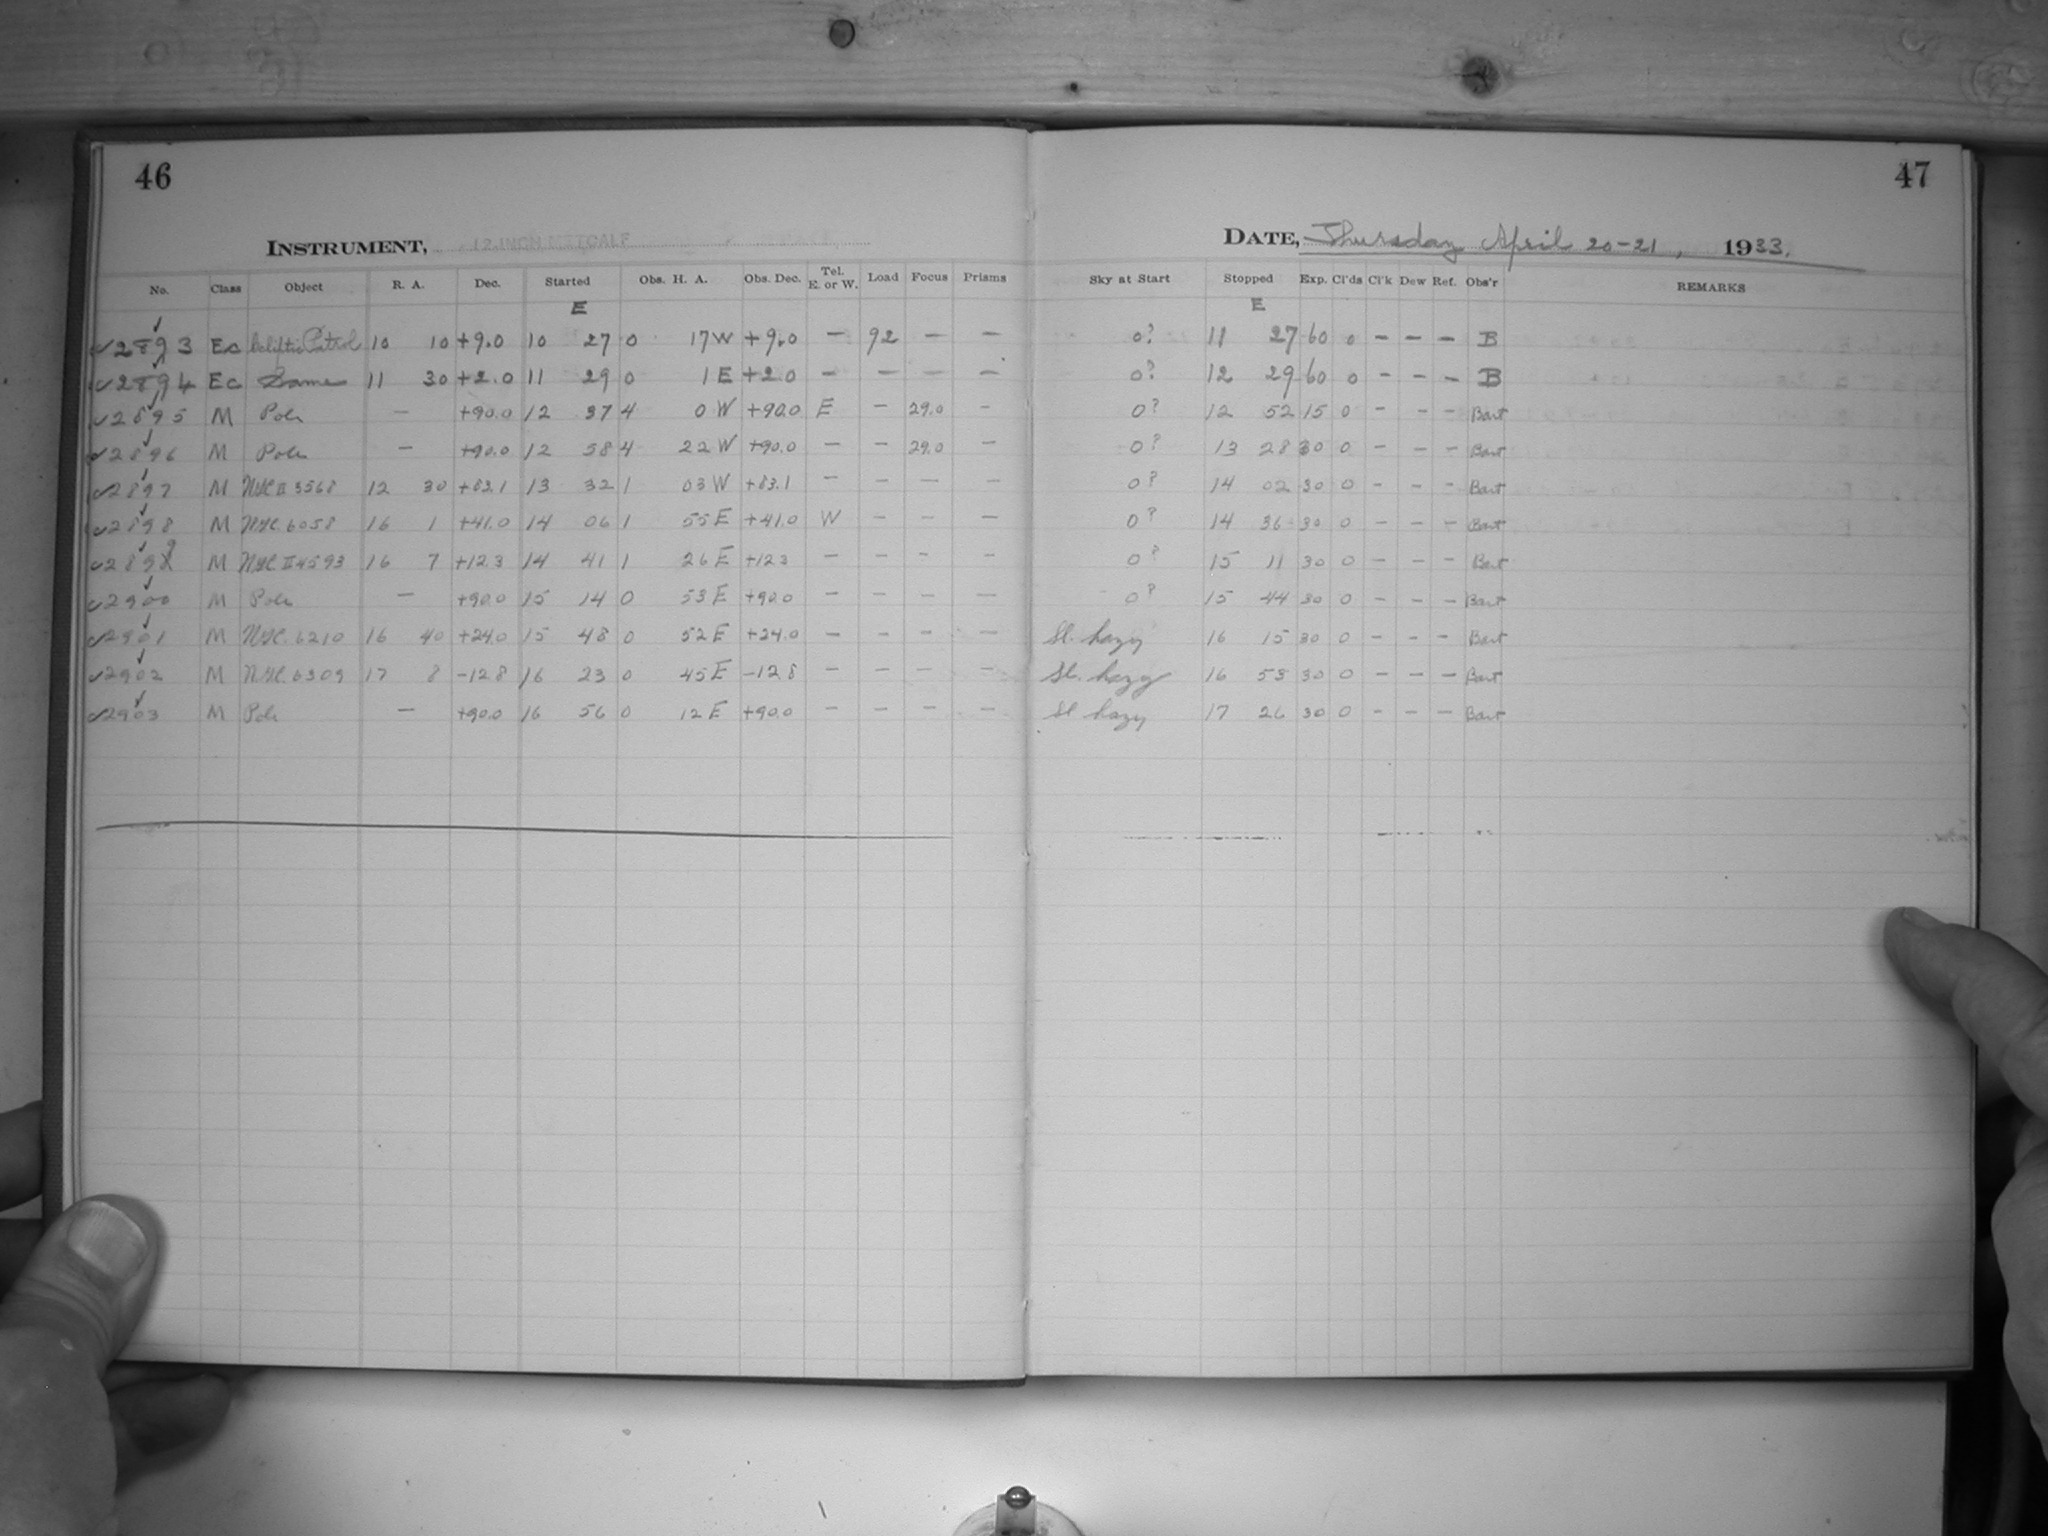 46
47
INSTRUMENT, 12-INCH METCALF
DATE, Thursday April 20-21, 1933.
No. Class Object R. A. Dec. Started Obs. H. A. Obs. Dec. Tel. E. or W. Load Focus Prisms Sky at Start Stopped Exp. Cl'ds Cl'k Dew Ref. Obs'r REMARKS
E E
✓2893 Ec Ecliptic Patrol 10 10 +9.0 10 27 0 17 W +9.0 — 92 — — 0? 11 27 60 0 — — — B
✓2894 Ec Same 11 30 +2.0 11 29 0 1 E +2.0 — — — — 0? 12 29 60 0 — — — B
✓2895 M Pole — +90.0 12 37 4 0 W +90.0 E — 29.0 — 0? 12 52 15 0 — — — Bart
✓2896 M Pole — +90.0 12 58 4 22 W +90.0 — — 29.0 — 0? 13 28 30 0 — — — Bart
✓2897 M II 3568 12 30 +83.1 13 32 1 03 W +83.1 — — — — 0? 14 02 30 0 — — — Bart
✓2898 M 6058 16 1 +41.0 14 06 1 55 E +41.0 W — — — 0? 14 36 30 0 — — — Bart
✓2899 M II 4593 16 7 +12.3 14 41 1 26 E +12.3 — — — — 0? 15 11 30 0 — — — Bart
✓2900 M Pole — +90.0 15 14 0 53 E +90.0 — — — — 0? 15 44 30 0 — — — Bart
✓2901 M 6210 16 40 +24.0 15 48 0 52 E +24.0 — — — — Sl. hazy 16 15 30 0 — — — Bart
✓2902 M 6309 17 8 -12.8 16 23 0 45 E -12.8 — — — — Sl. hazy 16 53 30 0 — — — Bart
✓2903 M Pole — +90.0 16 56 0 12 E +90.0 — — — — Sl hazy 17 26 30 0 — — — Bart